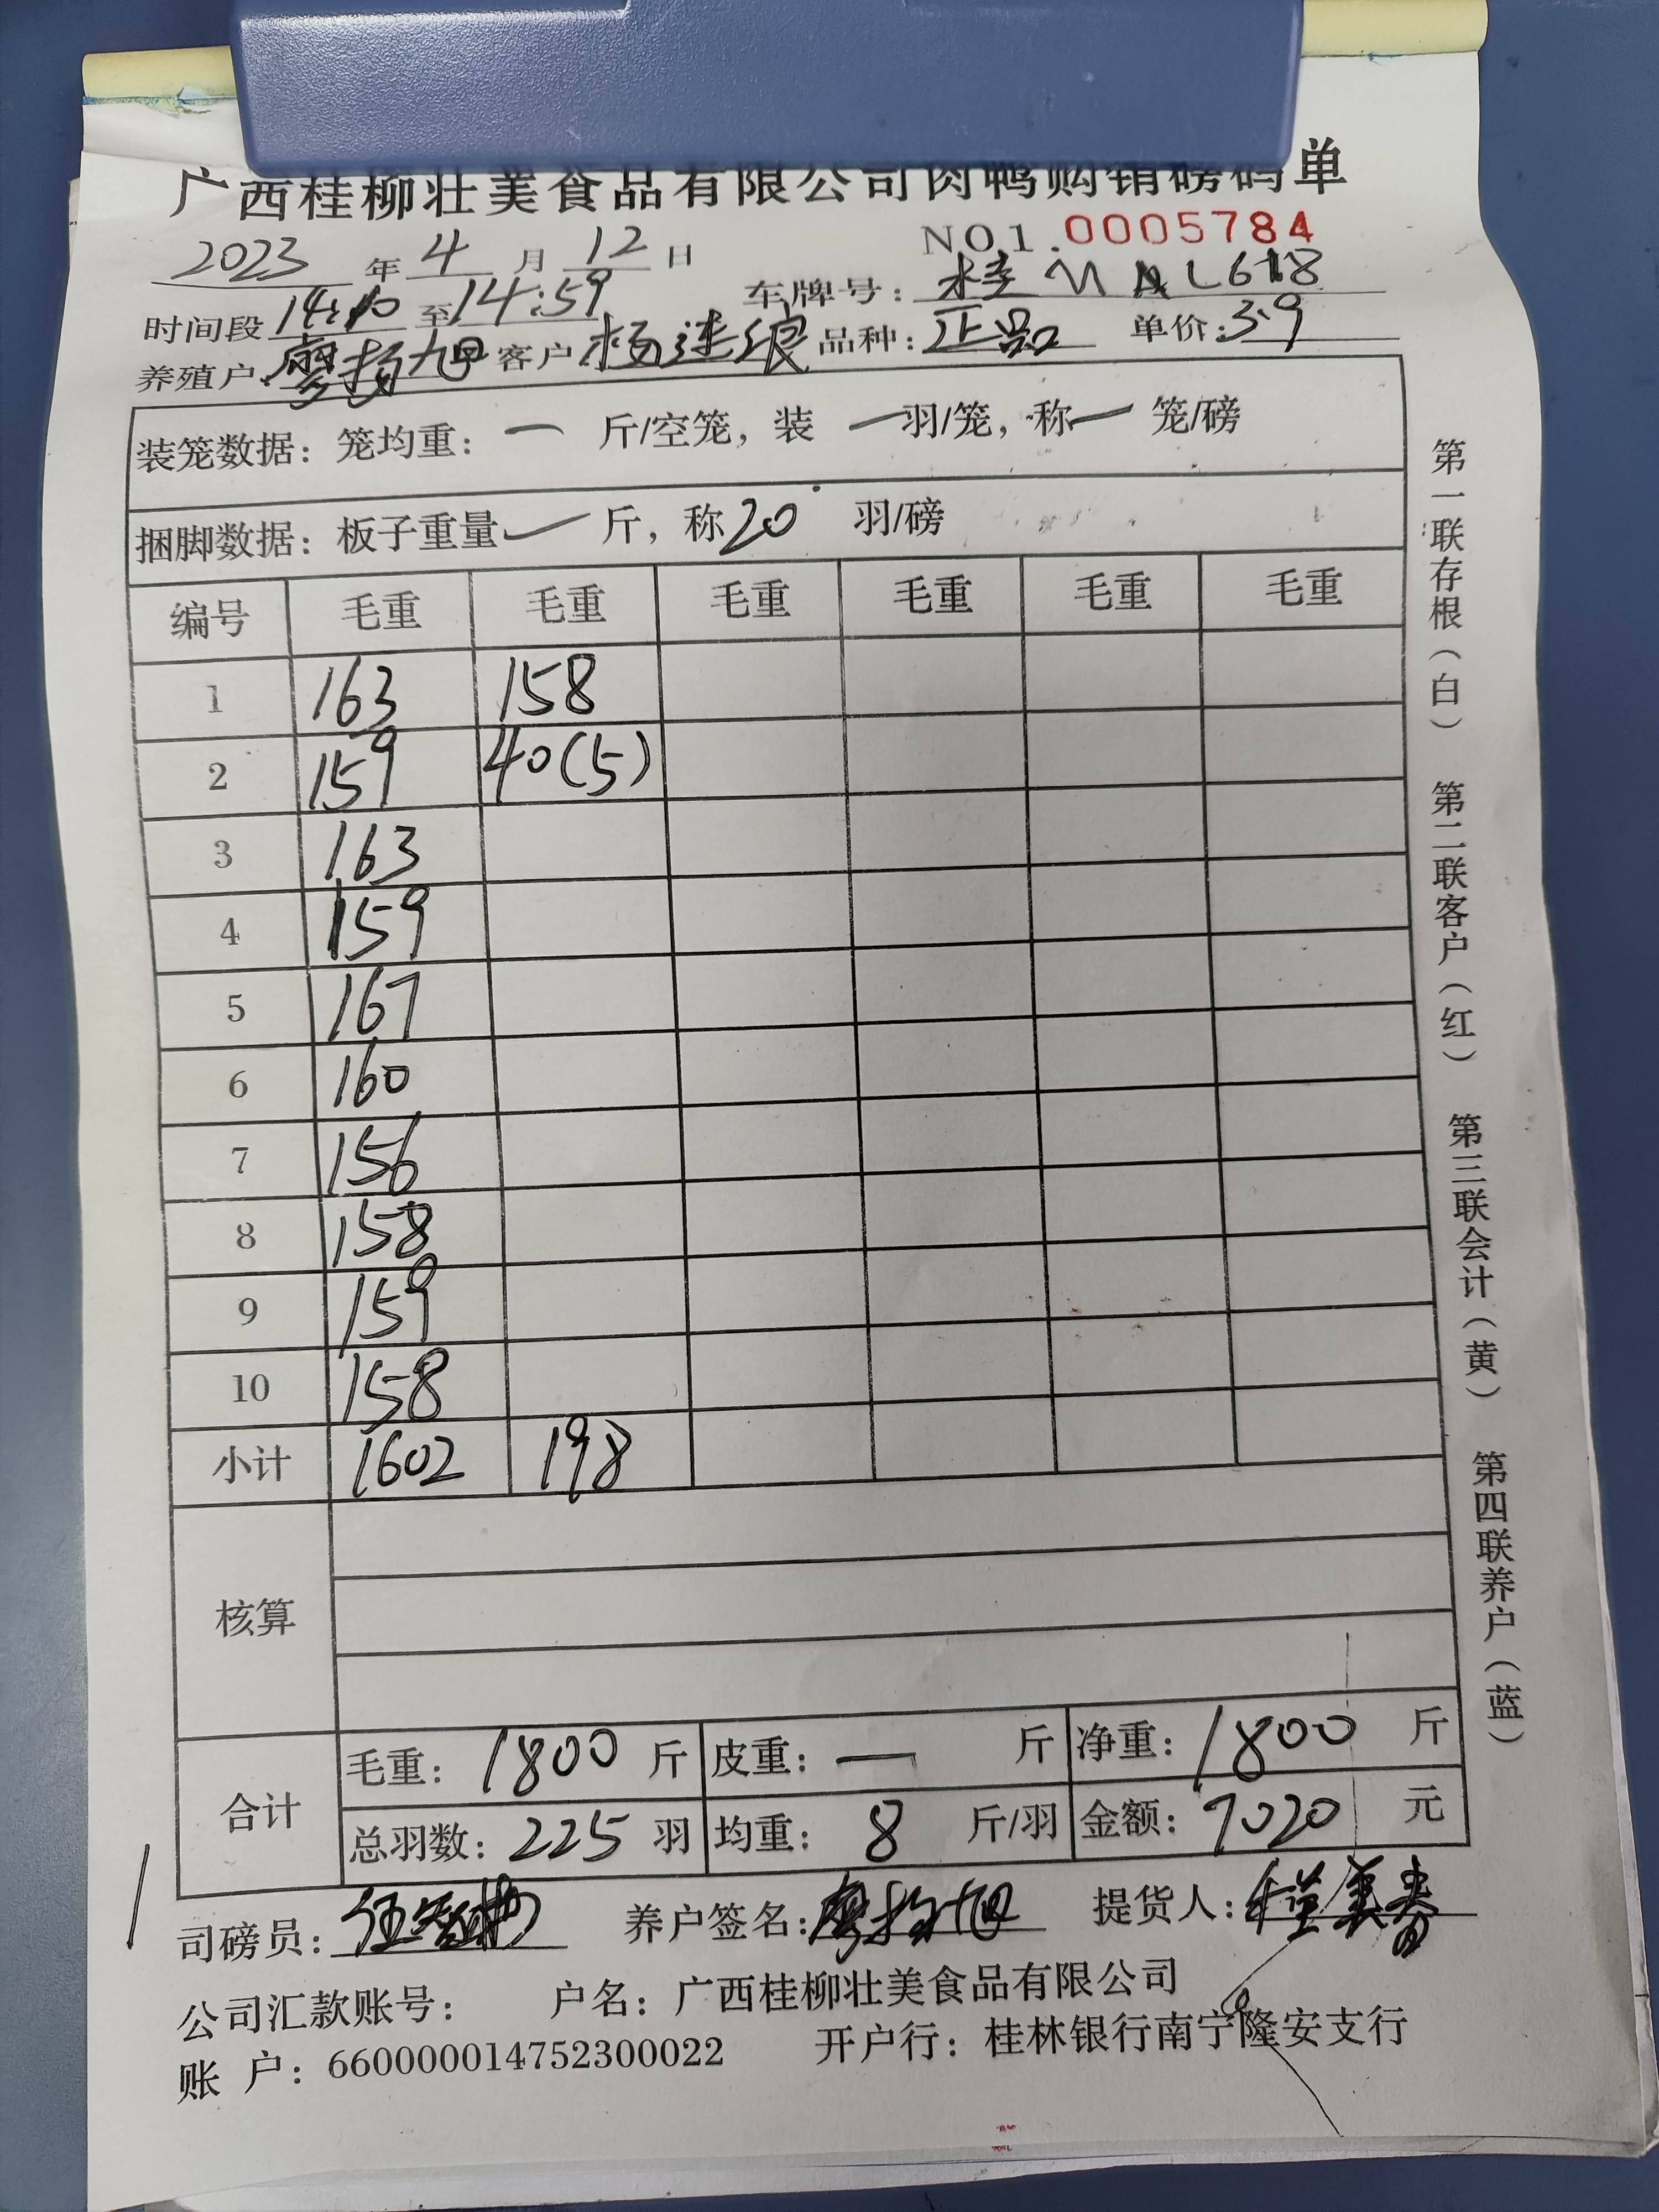 广西桂柳壮美食品有限公司肉鸭购销磅码单
NO1.0005784
2023年4月12日
时间段14:10至14:59 车牌号:桂
养殖户:廖扬旭 客户: 品种:正品 单价:3.9
装笼数据:笼均重:一 斤/空笼,装 一羽/笼,称一 笼/磅
捆脚数据:板子重量一 斤,称20 羽/磅
编号 毛重 毛重 毛重 毛重 毛重 毛重
1 163 158
2 159 40(5)
3 163
4 159
5 167
6 160
7 156
8 158
9 159
10 158
小计 1602 198
核算
合计 毛重:1800斤 皮重:一 斤 净重:1800 斤
总羽数:225羽 均重:8 斤/羽 金额:7020 元
司磅员: 养户签名:廖扬旭 提货人:
公司汇款账号: 户名:广西桂柳壮美食品有限公司
账 户:660000014752300022 开户行:桂林银行南宁隆安支行
第一联存根(白) 第二联客户(红) 第三联会计(黄) 第四联养户(蓝)